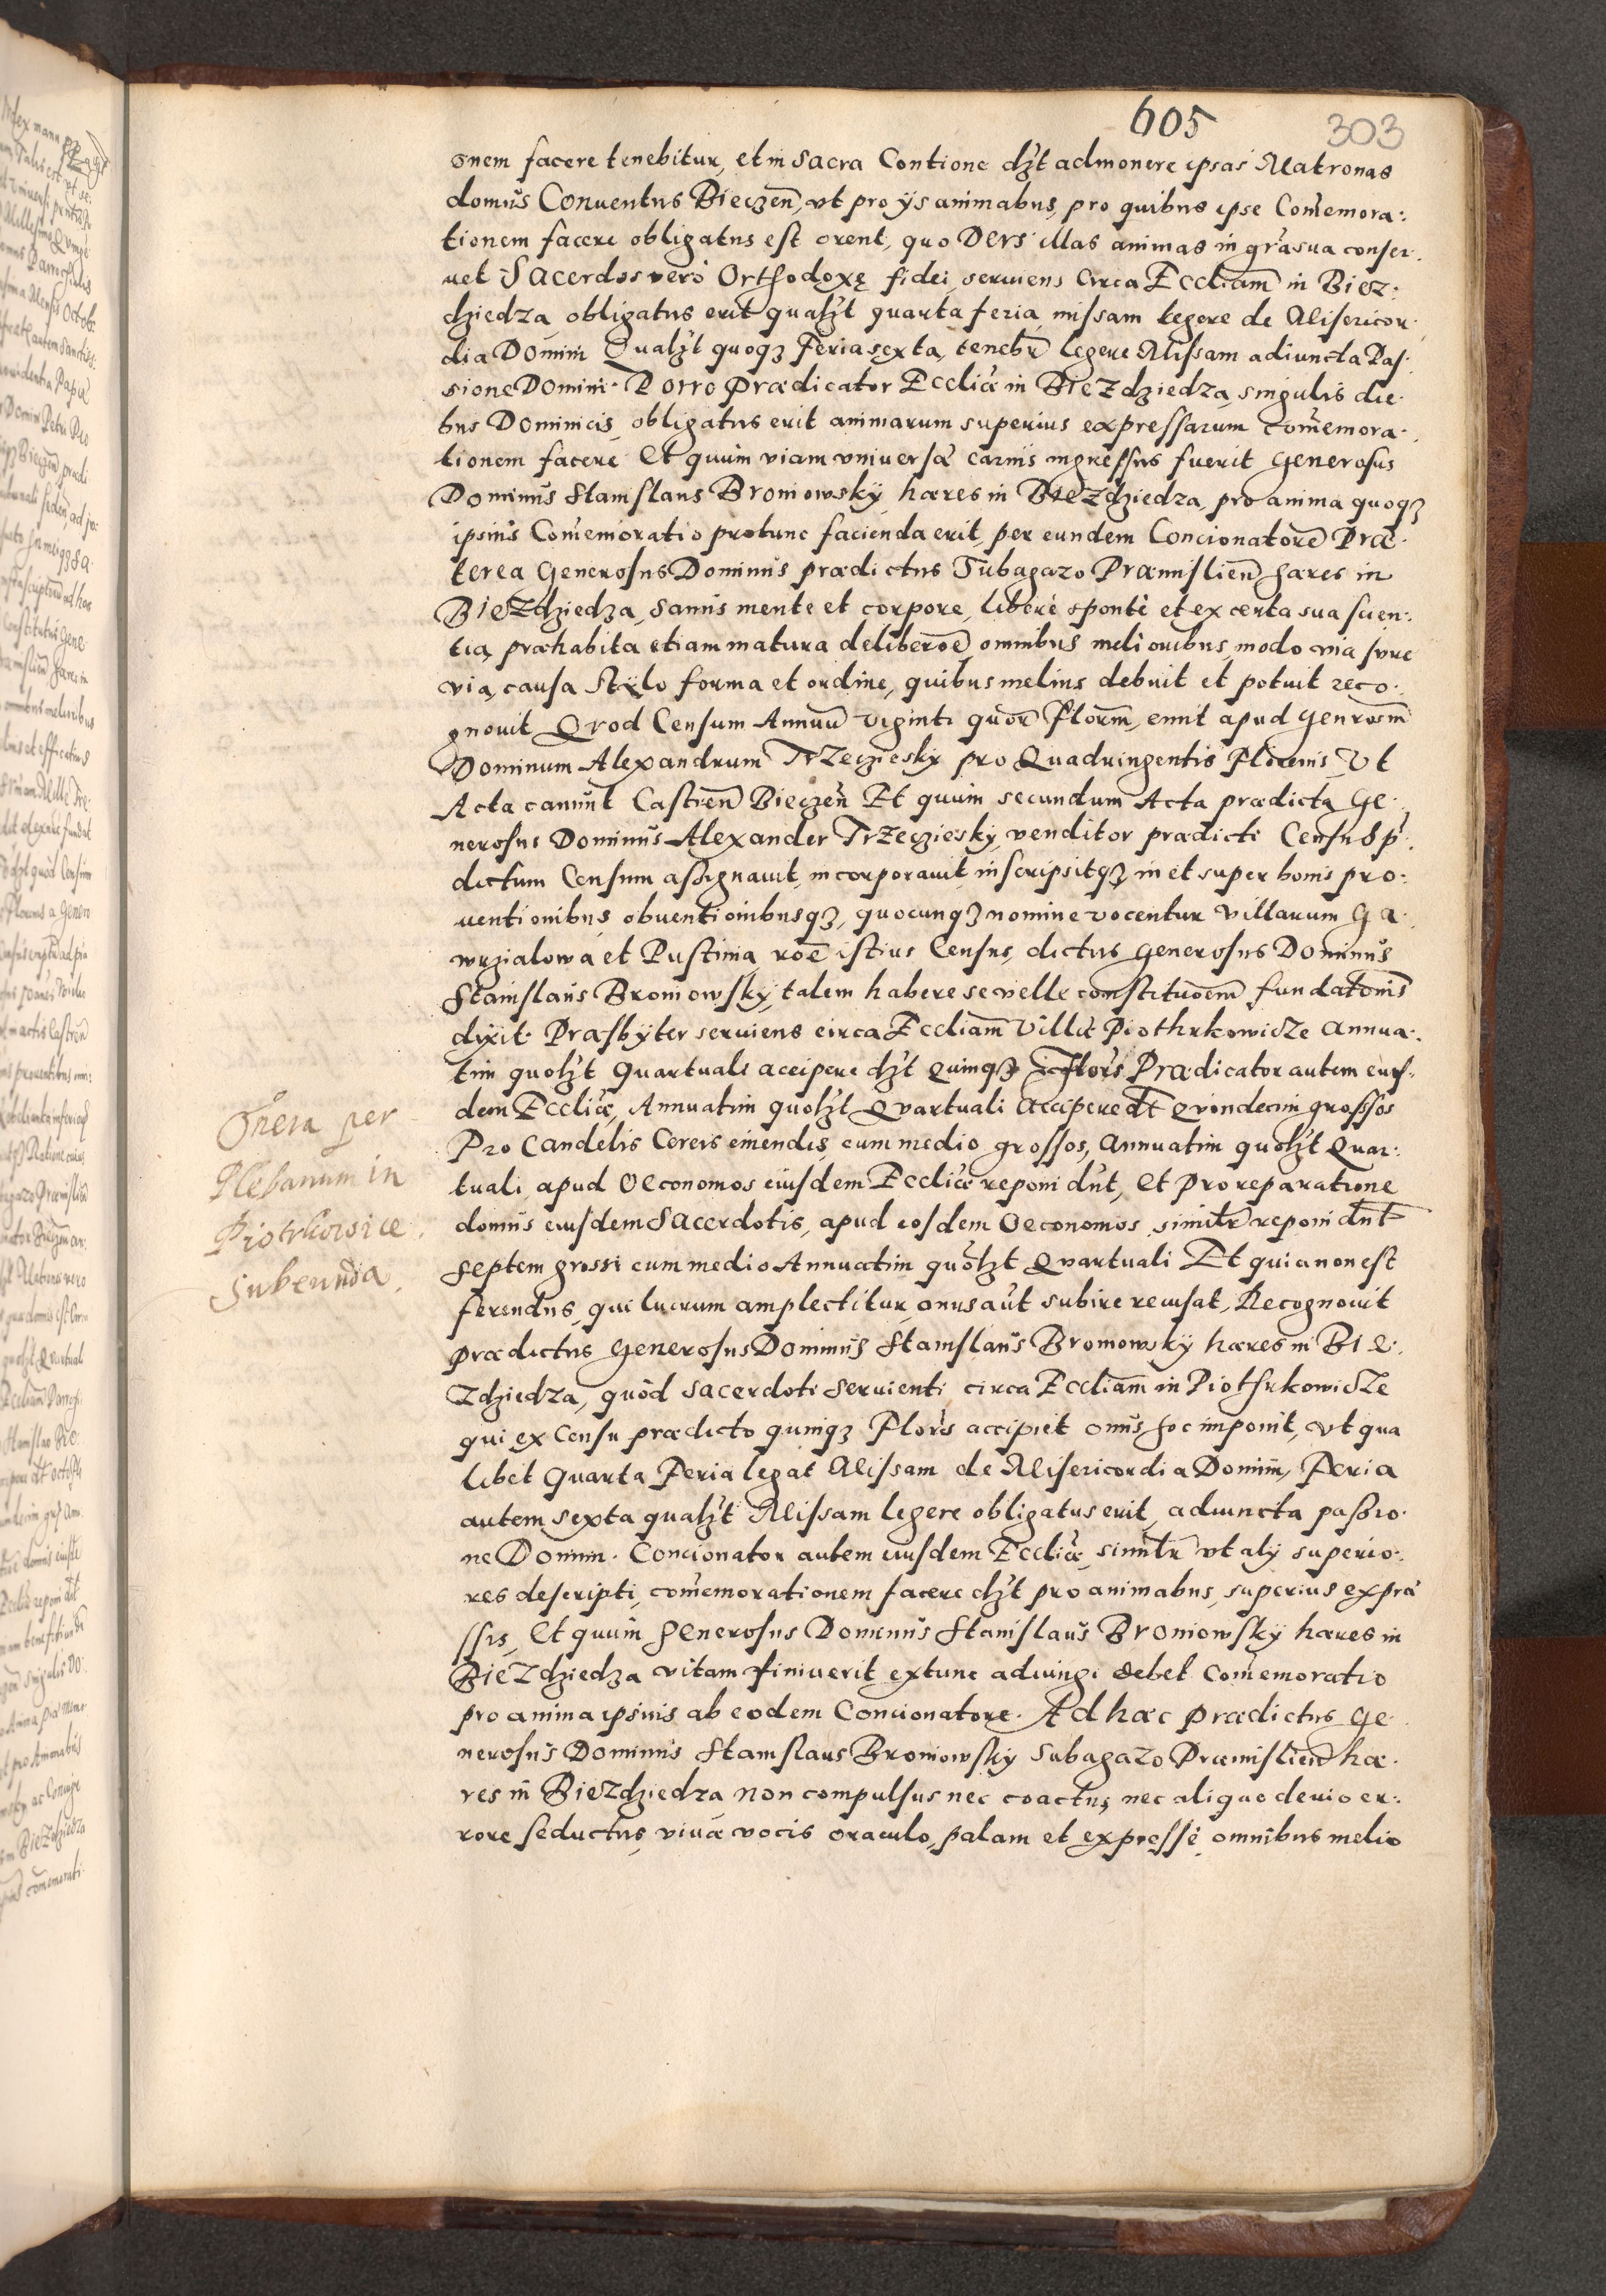 605
303
onem facere tenebitur, et in sacra Contione dʒt admonere ipsas Matronas
domus Conuentus Bieczen̄, vt pro ijs animabus, pro quibus ipse Com̄emora:
tionem facere obligatus est orent, quo Deus illas animas in gr̄a sua conser:
uet Sacerdos verò Orthodoxę fidei, seruiens circa Eccliam̄ in Biez:
dziedza, obligatus erit qualʒt quarta feria, missam legere de Misericor:
dia Domini Qualʒt quoqʒ Feria sexta, tenebr̄ legere Missam adiuncta Pas:
sione Domini. Porro Prædicator Eccliæ in Biezdziedza, singulis die:
bus Dominicis, obligatus erit animarum superius expressarum com̄emora:
tionem facere Et quum viam vniuersæ carnis ingressus fuerit Generosus
Dominus Stanislaus Broniowskÿ, hæres in Biezdziedza, pro anima quoqʒ
ipsius Com̄emoratio protunc facienda erit, per eundem Concionatorē Præ:
terea Generosus Dominus prædictus Subagazo Præmislien̄ hæres in
Biezdziedza, sanus mente et corpore, liberè spontè et ex certa sua scien:
tia, præhabita etiam matura deliberōe, omnibus melioribus, modo via iure
via, causa stÿlo forma et ordine, quibus melius debuit et potuit reco:
gnouit Quod Censum Annuū viginti quor̄ Florm̄, emit apud Genrosm̄
Dominum Alexandrum Trzeczieskÿ pro Quadringentis Florenis, Vt
Acta canunt Castren̄ Bieczen̄ Et quum secundum Acta prædicta Ge:
nerosus Dominus Alexander Trzeczieskÿ, venditor prædicti Census p̄:
dictum Censum assignauit, incorporauit, inscripsitqʒ, in et super bonis pro:
uentionibus, obuentionibusqʒ, quocunqʒ nomine vocentur villarum Ga:
wrzialowa et Pustinia, rōe istius Census, dictus Generosus Dominus
Stanislaus Broniowskÿ, talem habere se velle constituoem̄ fundatonis
dixit. Præsbÿter seruiens circa Eccliam̄ Villæ Piothrkowicze Annua:
tim quolʒt Quartuali accipere dʒt quinqʒ Flor̄s Prædicator autem eius:
dem Eccliæ, Annuatim quolʒt Quartuali Accipere dt̄ quindecim grossos
Pro Candelis Cereis emendis, cum medio grossos, annuatim quolʒt Quar:
tuali, apud Oeconomos eiusdem Eccliæ reponi dn̄t, Et pro reparatione
domus eiusdem Sacerdotis, apud eosdem Oeconomos, similtr̄ reponi dn̄t
septem grossi cum medio Annuatim quolʒt Quartuali Et quia non est
ferendus, qui lucrum amplectitur, onus aūt subire recusat, Recognouit
prædictus Generosus Dominus Stanislaus Broniowskÿ hæres in Bie:
zdziedza, quòd sacerdoti seruienti circa Eccliam̄ in Piothrkowicze
qui ex Censu prædicto quinqʒ Flor̄s accipiet onus hoc imponit, vt qua
libet Quarta Feria legat Missam de Misericordia Domini, Feria
autem sexta qualʒt Missam legere obligatus erit, adiuncta passio:
ne Domini. Concionator autem eiusdem Eccliæ, similtr̄ vt alij superio:
res descripti, com̄emorationem facere dʒt pro animabus, superius expræ
ssis, Et quum Generosus Dominus Stanislaus Broniowskÿ hæres in
Biezdziedza vitam finiuerit, extunc adiungi debet Com̄emoratio
pro anima ipsius ab eodem Concionatore. Ad hæc prædictus Ge:
nerosus Dominus Stanislaus Broniowskÿ Subagazo Præmislien̄ hæ:
res in Biezdziedza non compulsus nec coactus, nec aliquo deuio er:
rore seductus, viuæ vocis oraculo, palam et expressè omnibus melio
Onera per
Plebanum in
Piotrkowice
Subeunda.